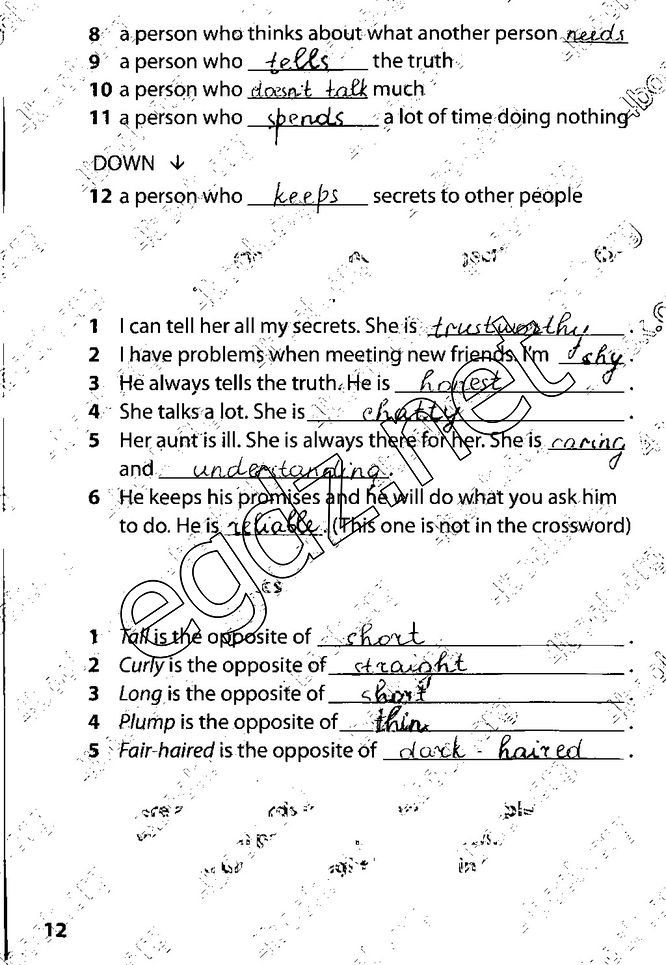 8 a person who thinks about what another person needs
9 a person who tells the truth
10 a person who doesn't talk much
11 a person who spends a lot of time doing nothing
DOWN ↓
12 a person who keeps secrets to other people
1 I can tell her all my secrets. She is trustworthy.
2 I have problems when meeting new friends. I'm shy.
3 He always tells the truth. He is honest.
4 She talks a lot. She is chatty.
5 Her aunt is ill. She is always there for her. She is caring
and understanding.
6 He keeps his promises and he will do what you ask him
to do. He is reliable. (This one is not in the crossword)
egdz.net
1 Tall is the opposite of short.
2 Curly is the opposite of straight.
3 Long is the opposite of short.
4 Plump is the opposite of thin.
5 Fair-haired is the opposite of dark-haired.
12